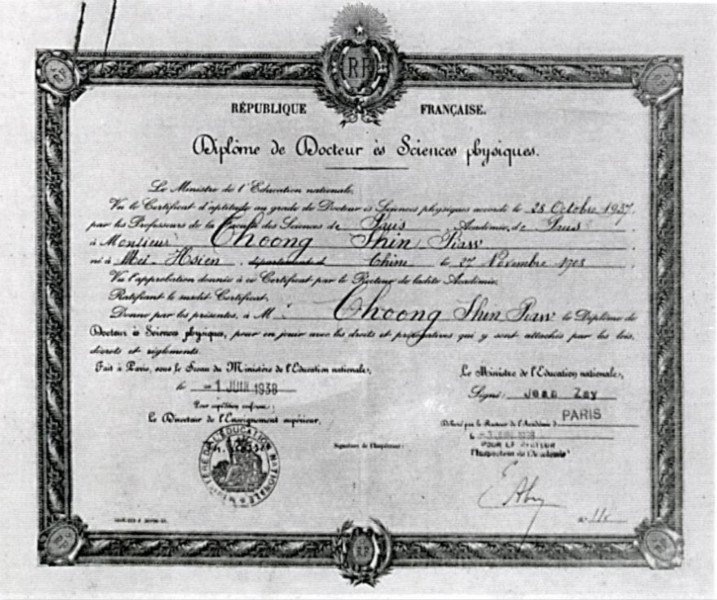 RF
RÉPUBLIQUE FRANÇAISE.
Diplôme de Docteur ès Sciences physiques.
Le Ministre de l'Education nationale,
Vu le Certificat d'aptitude au grade de Docteur ès Sciences physiques accordé le 28 Octobre 1937
par les Professeurs de la Faculté des Sciences de Paris, Académie de Paris
à Monsieur Choong Shin Piaw
né à Mei-Hsien, département d Chine le 27 Novembre 1903
Vu l'approbation donnée à ce Certificat par le Recteur de ladite Académie,
Ratifiant le susdit Certificat,
Donne par les présentes, à M. Choong Shin Piaw le Diplôme de
Docteur ès Sciences physiques, pour en jouir avec les droits et prérogatives qui y sont attachés par les lois,
décrets et règlements.
Fait à Paris, sous le Sceau du Ministère de l'Education nationale,
le 1 JUIN 1938
Pour expédition conforme:
Le Directeur de l'Enseignement supérieur,
MINISTÈRE DE L'ÉDUCATION NATIONALE
Signature de l'Impétrant:
Le Ministre de l'Education nationale,
Signé: Jean Zay
Délivré par le Recteur de l'Académie d PARIS
POUR LE RECTEUR
l'Inspecteur de l'Académie